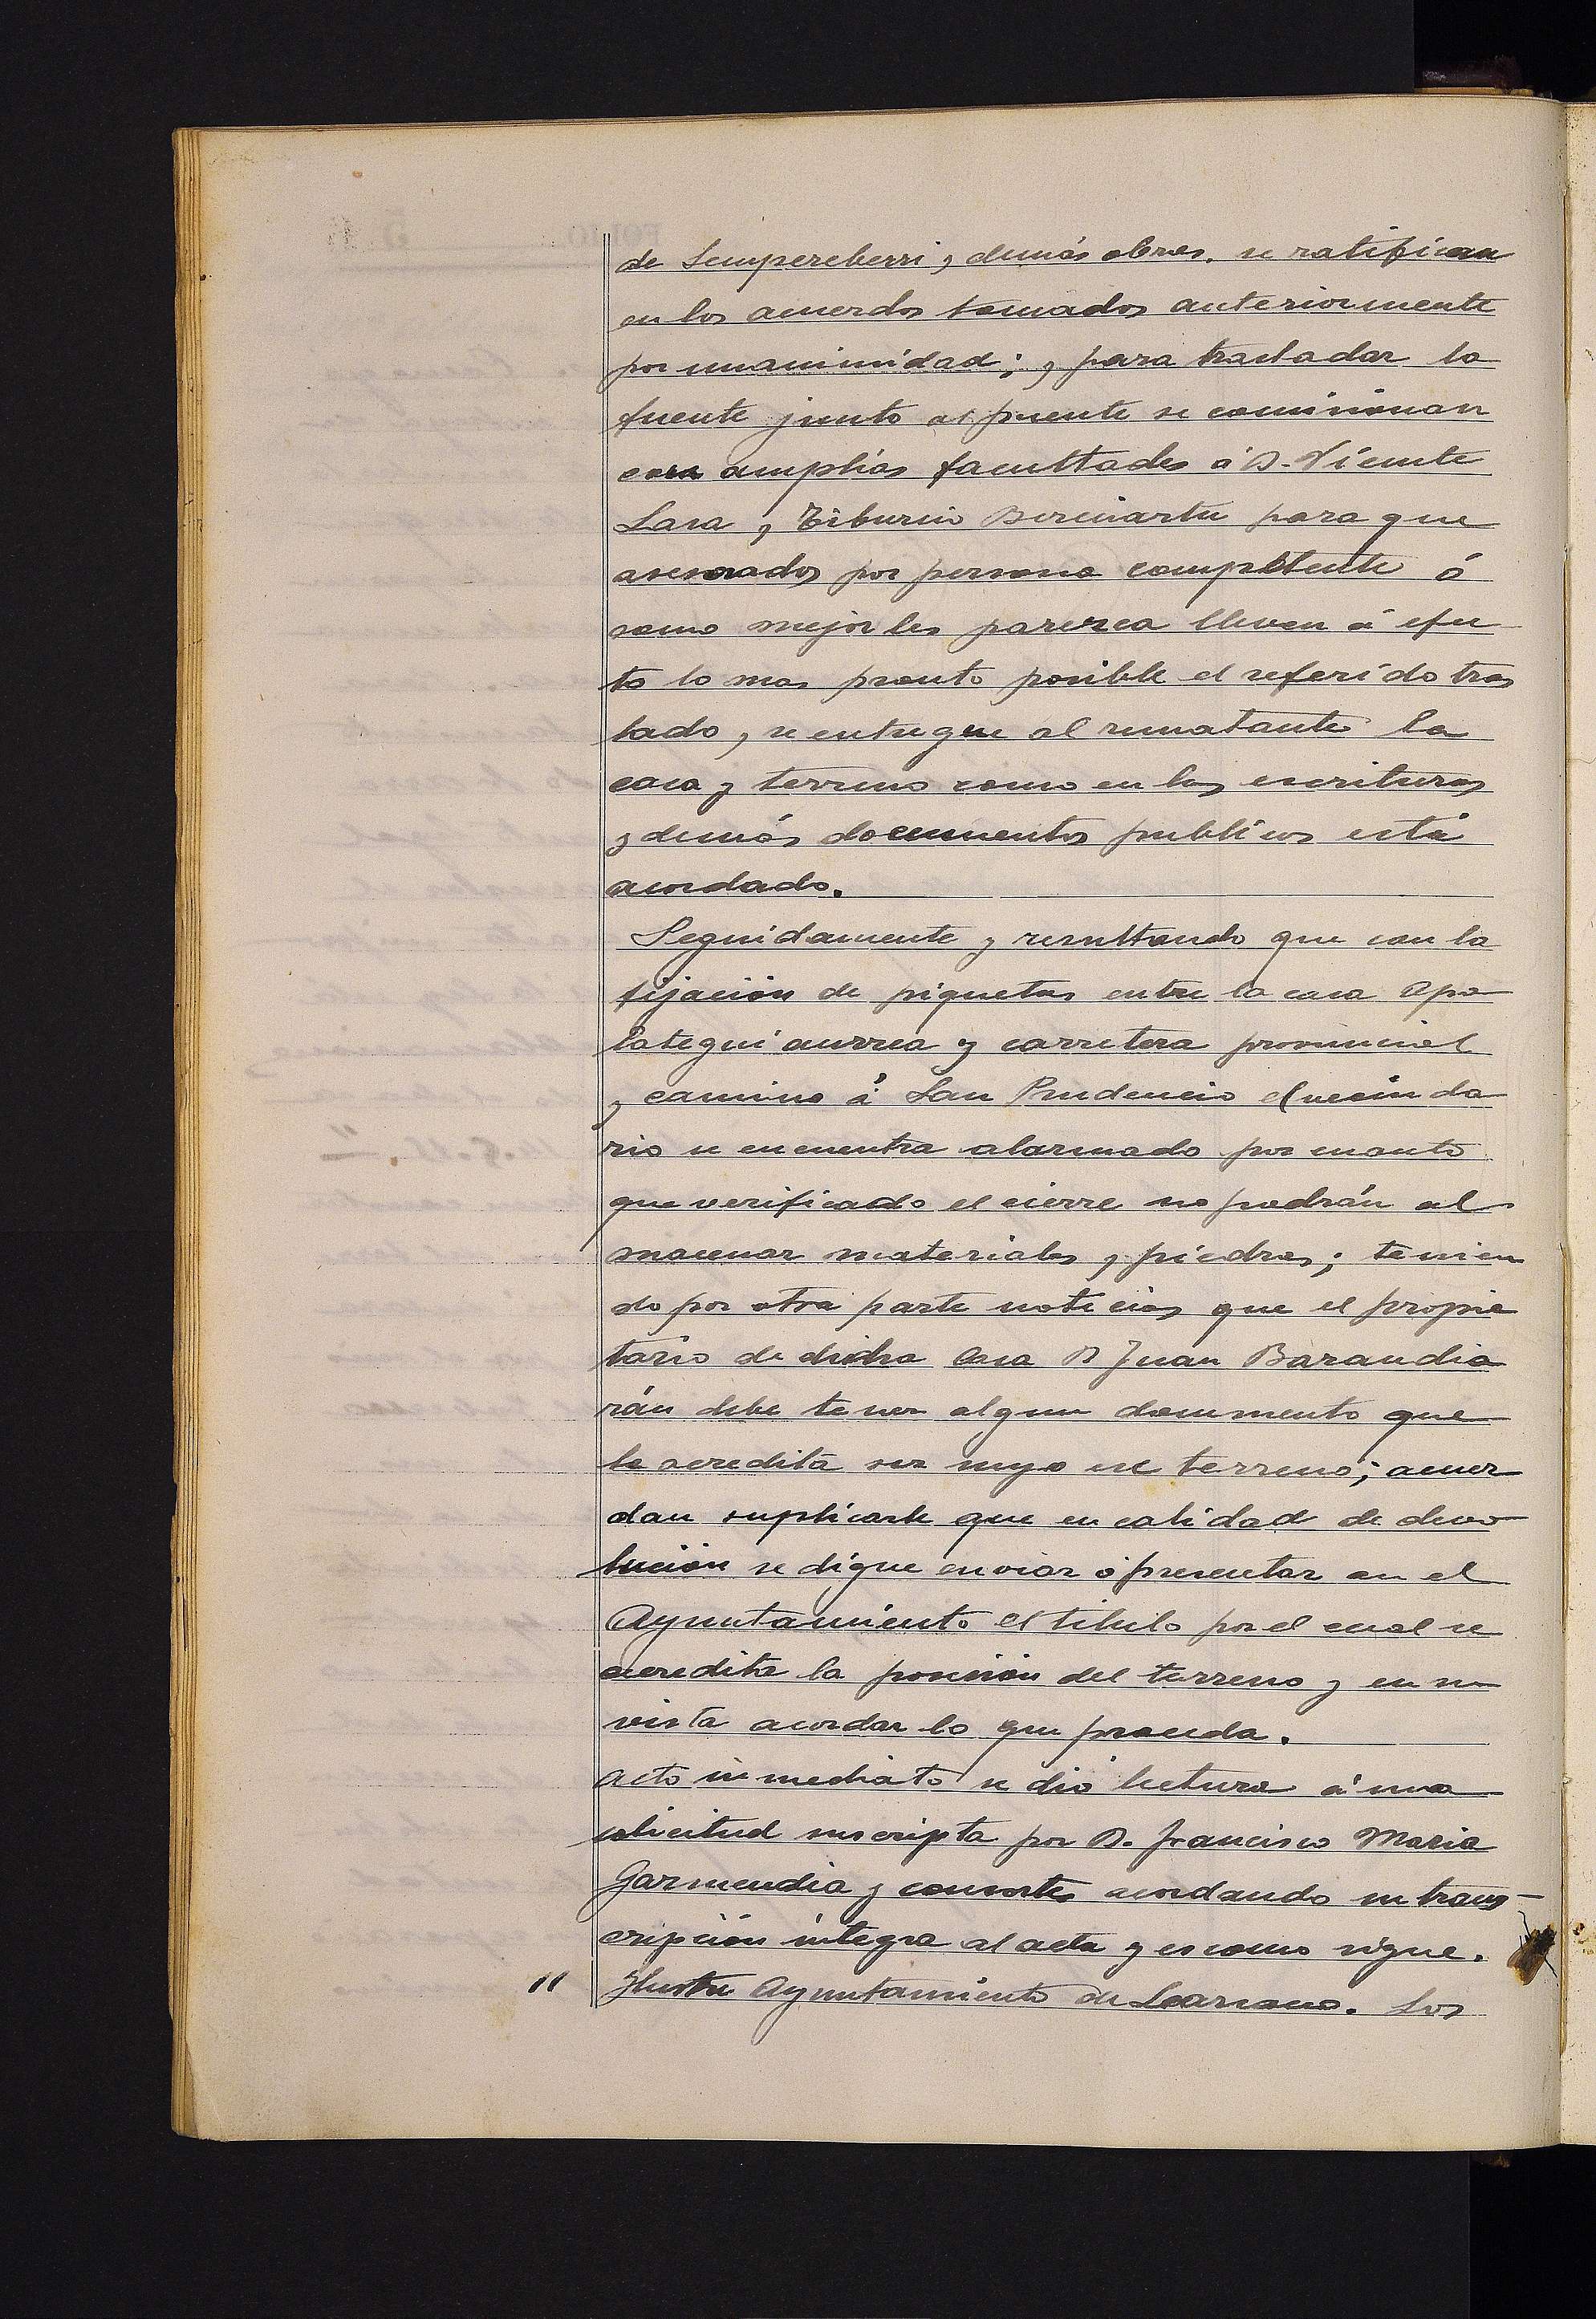 de Sempereberri, y demás obras. se ratifican
en los acuerdos tomados anteriormente
por unanimidad; y para trasladar la
fuente junto al puente se comisionan
con amplias facultades á D. Vicente
Lasa y Tiburcio para que
asesorados por persona competente ó
como mejor les parezca lleven á efec
to lo mas pronto posible el referido tras
lado, y se entregue al rematante la
casa y terreno como en las escrituras
y demás documentos publicos está
acordado.
Seguidamente y resultando que con la
fijación de piquetas entre la casa Apa
lategui aurrea y carretera provincial
y camino á San Prudencio el vecinda
rio se encuentra alarmado por cuanto
que verificado el cierre no podrán al
macenar materiales y piedras; tenien
do por otra parte noticias que el propie
tario de dicha casa D Juan Barandia
rán debe tener algun documento que
le acredita ser suyo ese terreno; acuer
dan suplicarle que en calidad de devo
lución se digne enviar ó presentar en el
Ayuntamiento el titulo por el cual se
acredite la posesión del terreno y en su
vista acordar lo que proceda.
Acto inmediato se dio lectura á una
solicitud suscripta por D. Francisco Maria
Garmendia y consortes acordando su trans-
cripción integra al acta y es como sigue.
" Ilustre Ayuntamiento de Lazcano. Los